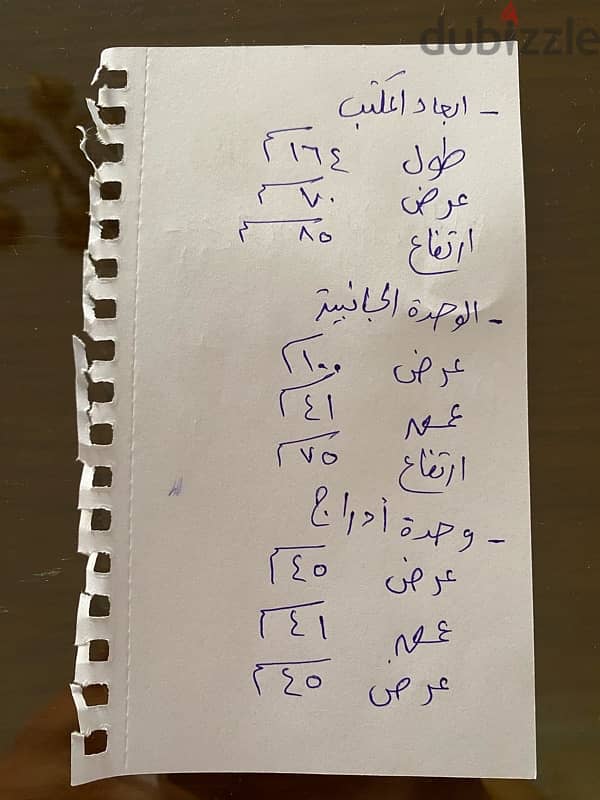 dubizzle
- ابعاد المكتب
طول ١٦٤ سم
عرض ٧٠ سم
ارتفاع ٨٥ سم
- الوحدة الجانبية
عرض ١٠٠ سم
عمق ٤١ سم
ارتفاع ٧٥ سم
- وحدة أدراج
عرض ٤٥ سم
عمق ٤١ سم
عرض ٤٥ سم